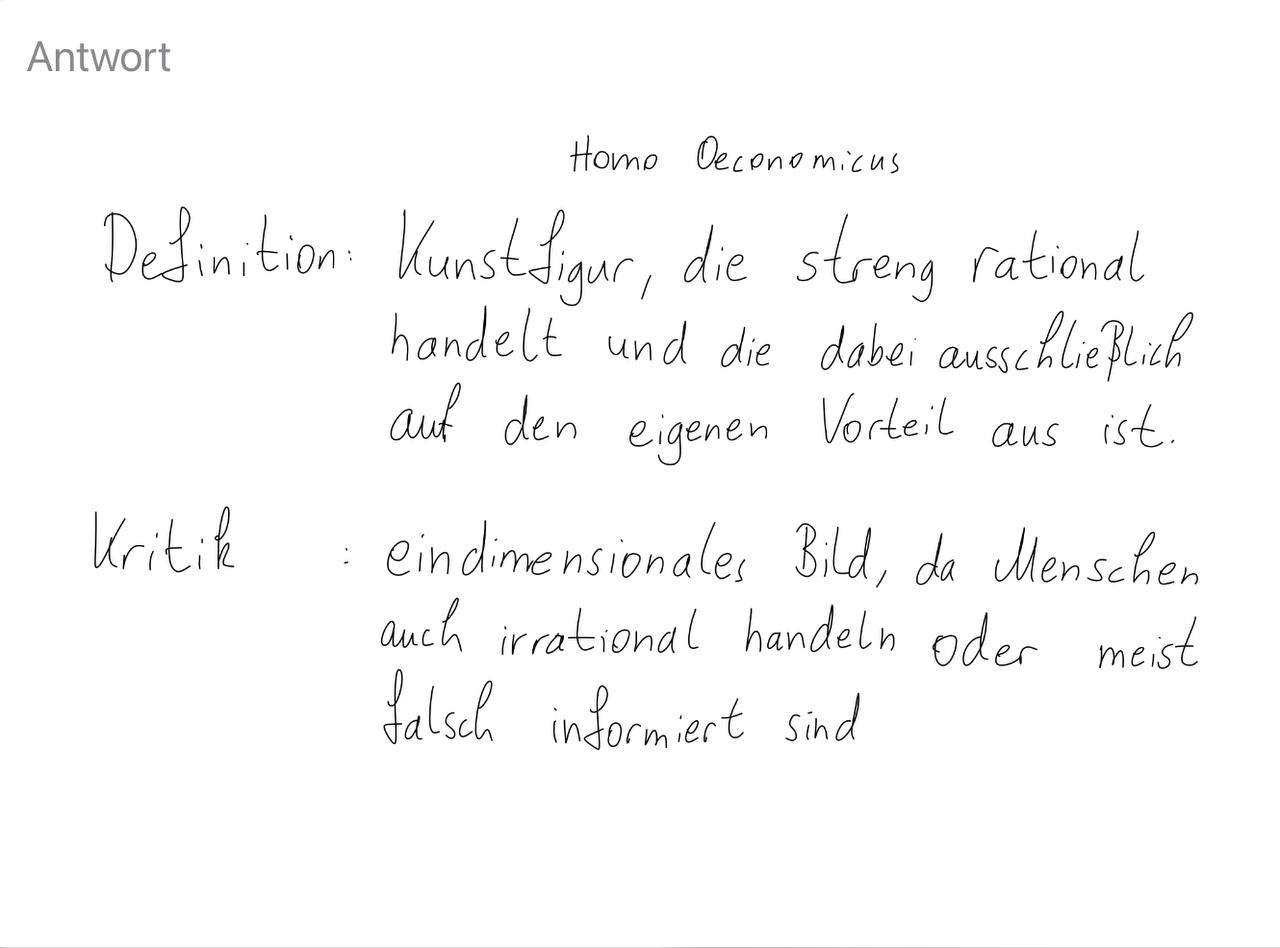 Antwort
Homo Oeconomicus
Definition: Kunstfigur, die streng rational
handelt und die dabei ausschließlich
auf den eigenen Vorteil aus ist.
Kritik : eindimensionales Bild, da Menschen
auch irrational handeln oder meist
falsch informiert sind